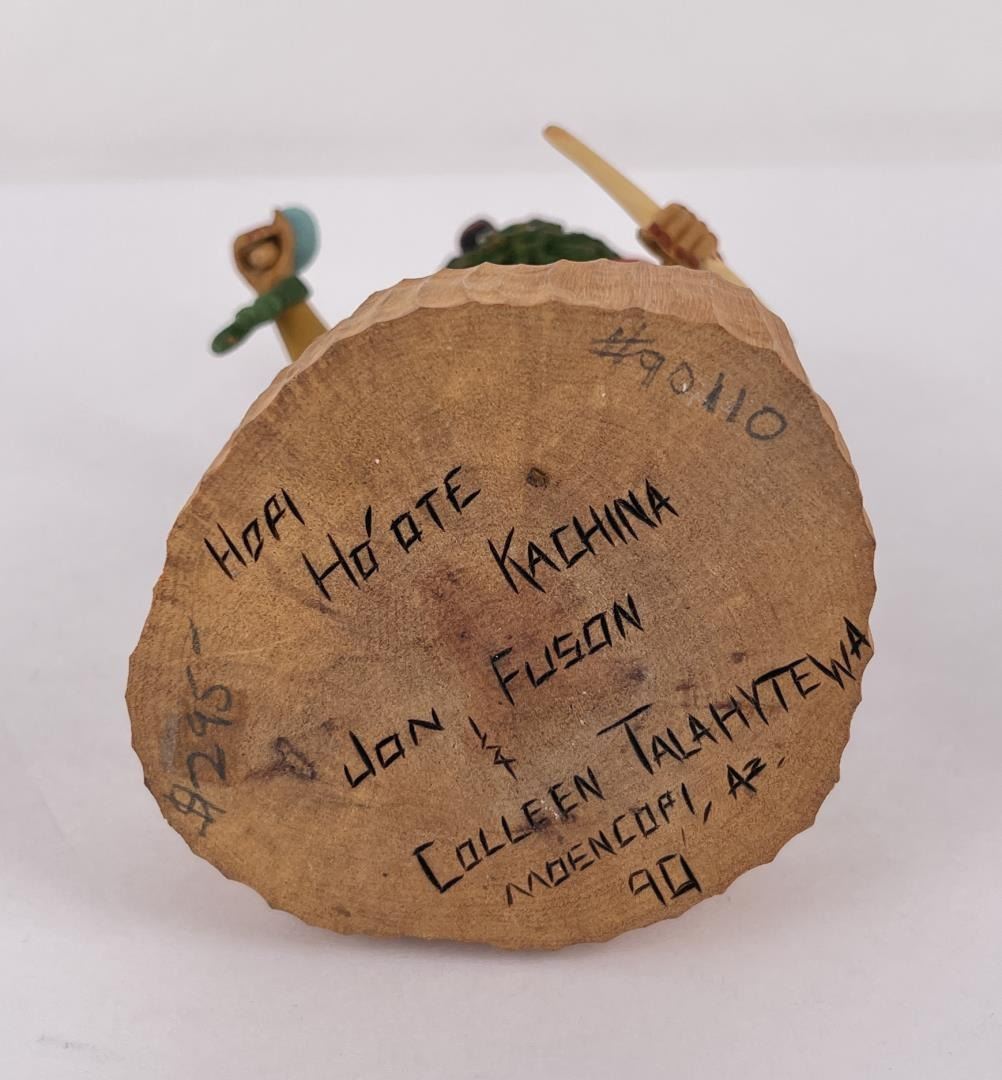 #90110
HOPI HO'OTE KACHINA
JON & FUSON
COLLEEN TALAHYTEWA
MOENCOPI, AZ.
90
$295-